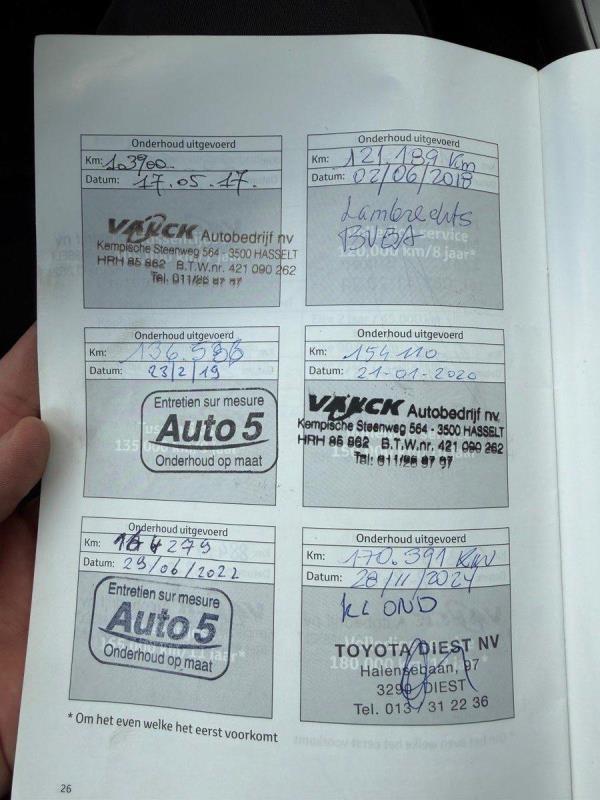 Onderhoud uitgevoerd
Km: 103900
Datum: 17.05.17.
VANCK Autobedrijf nv
Kempische Steenweg 564 - 3500 HASSELT
HRH 85 862 B.T.W.nr. 421 090 262
Tel. 011/26 97 97
Onderhoud uitgevoerd
Km: 121.189 Km
Datum: 02/06/2018
Lambrechts
BVBA
service
120,000 km/8 jaar*
Onderhoud uitgevoerd
Km: 136.586
Datum: 23/2/19
Entretien sur mesure
Auto 5
Onderhoud op maat
Onderhoud uitgevoerd
Km: 154110
Datum: 21-01-2020
VANCK Autobedrijf nv
Kempische Steenweg 564 - 3500 HASSELT
HRH 85 862 B.T.W.nr. 421 090 262
Tel. 011/26 97 97
Onderhoud uitgevoerd
Km: 164279
Datum: 29/06/2022
Entretien sur mesure
Auto 5
Onderhoud op maat
Onderhoud uitgevoerd
Km: 170.391 KM
Datum: 28/11/2024
KL OND
TOYOTA DIEST NV
Halensebaan, 97
3290 DIEST
Tel. 013 / 31 22 36
180,000
* Om het even welke het eerst voorkomt
26